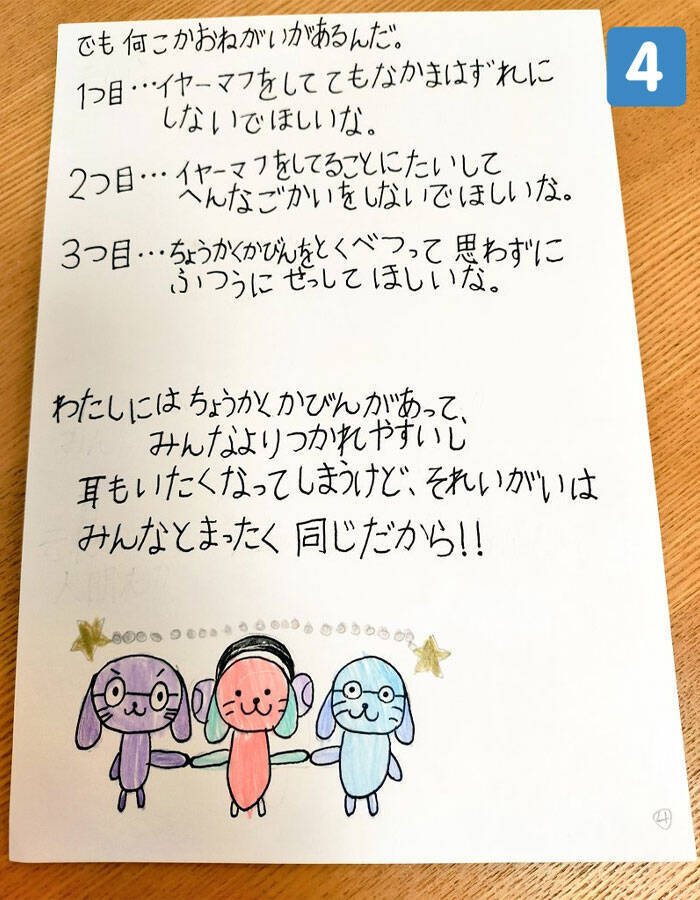 4
でも何こかおねがいがあるんだ。
1つ目…イヤーマフをしててもなかまはずれに
しないでほしいな。
2つ目…イヤーマフをしてることにたいして
へんなごかいをしないでほしいな。
3つ目…ちょうかくかびんをとくべつって思わずに
ふつうにせっしてほしいな。
わたしにはちょうかくかびんがあって、
みんなよりつかれやすいし
耳もいたくなってしまうけど、それいがいは
みんなとまったく同じだから!!
4